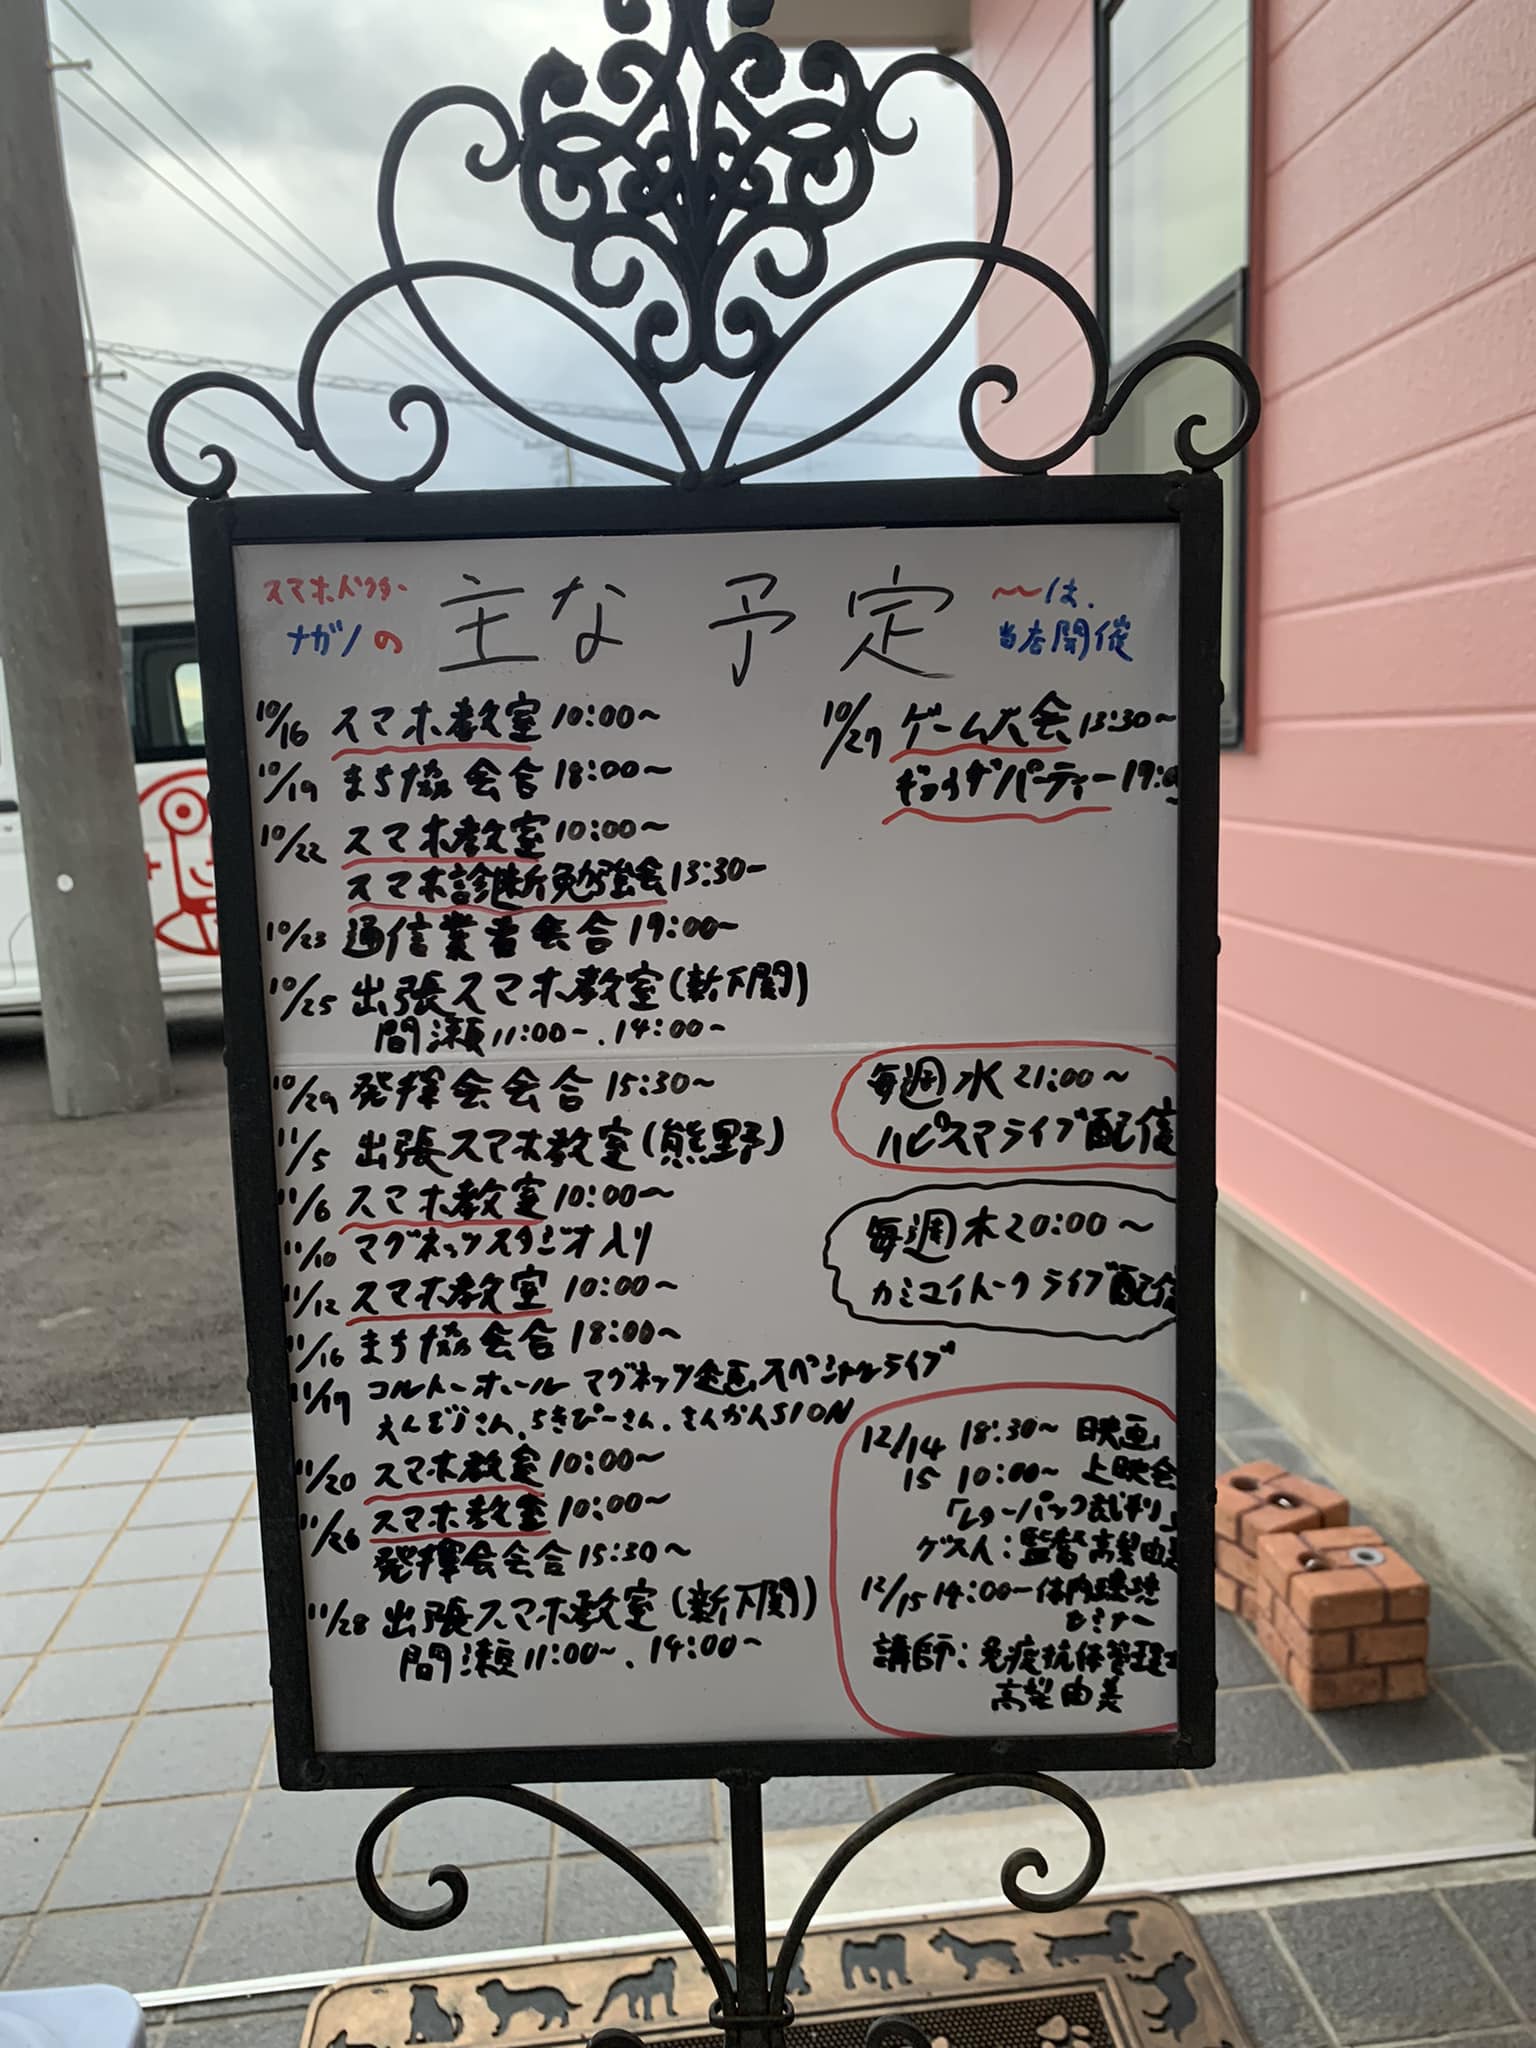 スマホドクター
ナガノの
主な予定
〜は、
当店開催
10/16 スマホ教室 10:00〜
10/19 まち協会合 18:00〜
10/22 スマホ教室 10:00〜
スマホ診断勉強会 13:30〜
10/23 通信業者会合 19:00〜
10/25 出張スマホ教室(新下関)
間瀬 11:00〜、14:00〜
10/29 発揮会会合 15:30〜
11/5 出張スマホ教室(熊野)
11/6 スマホ教室 10:00〜
11/10 マグネッツスタジオ入り
11/12 スマホ教室 10:00〜
11/16 まち協会合 18:00〜
11/17 コルトーホール マグネッツ企画スペシャルライブ
えんどうさん、ちきぴーさん、さんかんSION
11/20 スマホ教室 10:00〜
11/26 スマホ教室 10:00〜
発揮会会合 15:30〜
11/28 出張スマホ教室(新下関)
間瀬 11:00〜、14:00〜
10/27 ゲーム大会 13:30〜
ギョウザパーティー 19:0
毎週水 21:00〜
ハピスマライブ配信
毎週木 20:00〜
カミマイトークライブ配信
12/14 18:30〜 映画
15 10:00〜 上映会
「レターパック裁判」
ゲスト:監督 高梨由美
12/15 14:00〜 体内環境
セミナー
講師:免疫抗体管理士
高梨由美